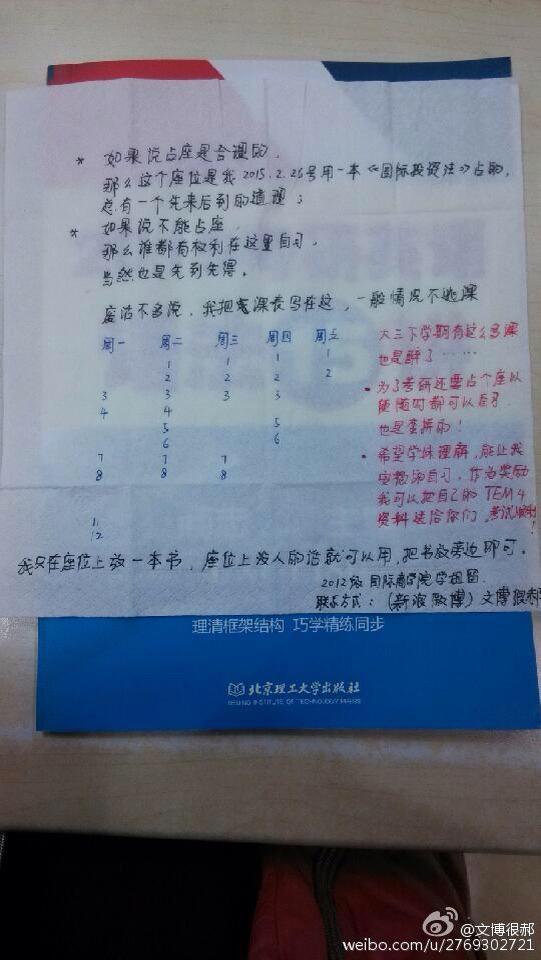 * 如果说占座是合理的,
那么这个座位是我2015.2.26号用一本《国际投资法》占的,
总有一个先来后到的道理;
* 如果说不能占座,
那么谁都有权利在这里自习,
当然也是先到先得。
废话不多说,我把课表写在这,一般情况不逃课
周一 周二 周三 周四 周五
1 1 1 1
2 2 2 2
3 3 3 3
4 4
5 5
6 6
7 7 7
8 8 8
11
12
大三下学期有这么多课
也是醉了……
• 为了考研还要占个座以
随时都可以自习
也是蛮拼的!
• 希望学妹理解,能让我
安稳的自习,作为奖励
我可以把自己的TEM4
资料送给你们,考试顺利!
我只在座位上放一本书,座位上没人的话就可以用,把书放旁边即可。
2012级国际商学院学姐留
联系方式:(新浪微博)文博很郝
理清框架结构 巧学精练同步
北京理工大学出版社
BEIJING INSTITUTE OF TECHNOLOGY PRESS
@文博很郝
weibo.com/u/2769302721